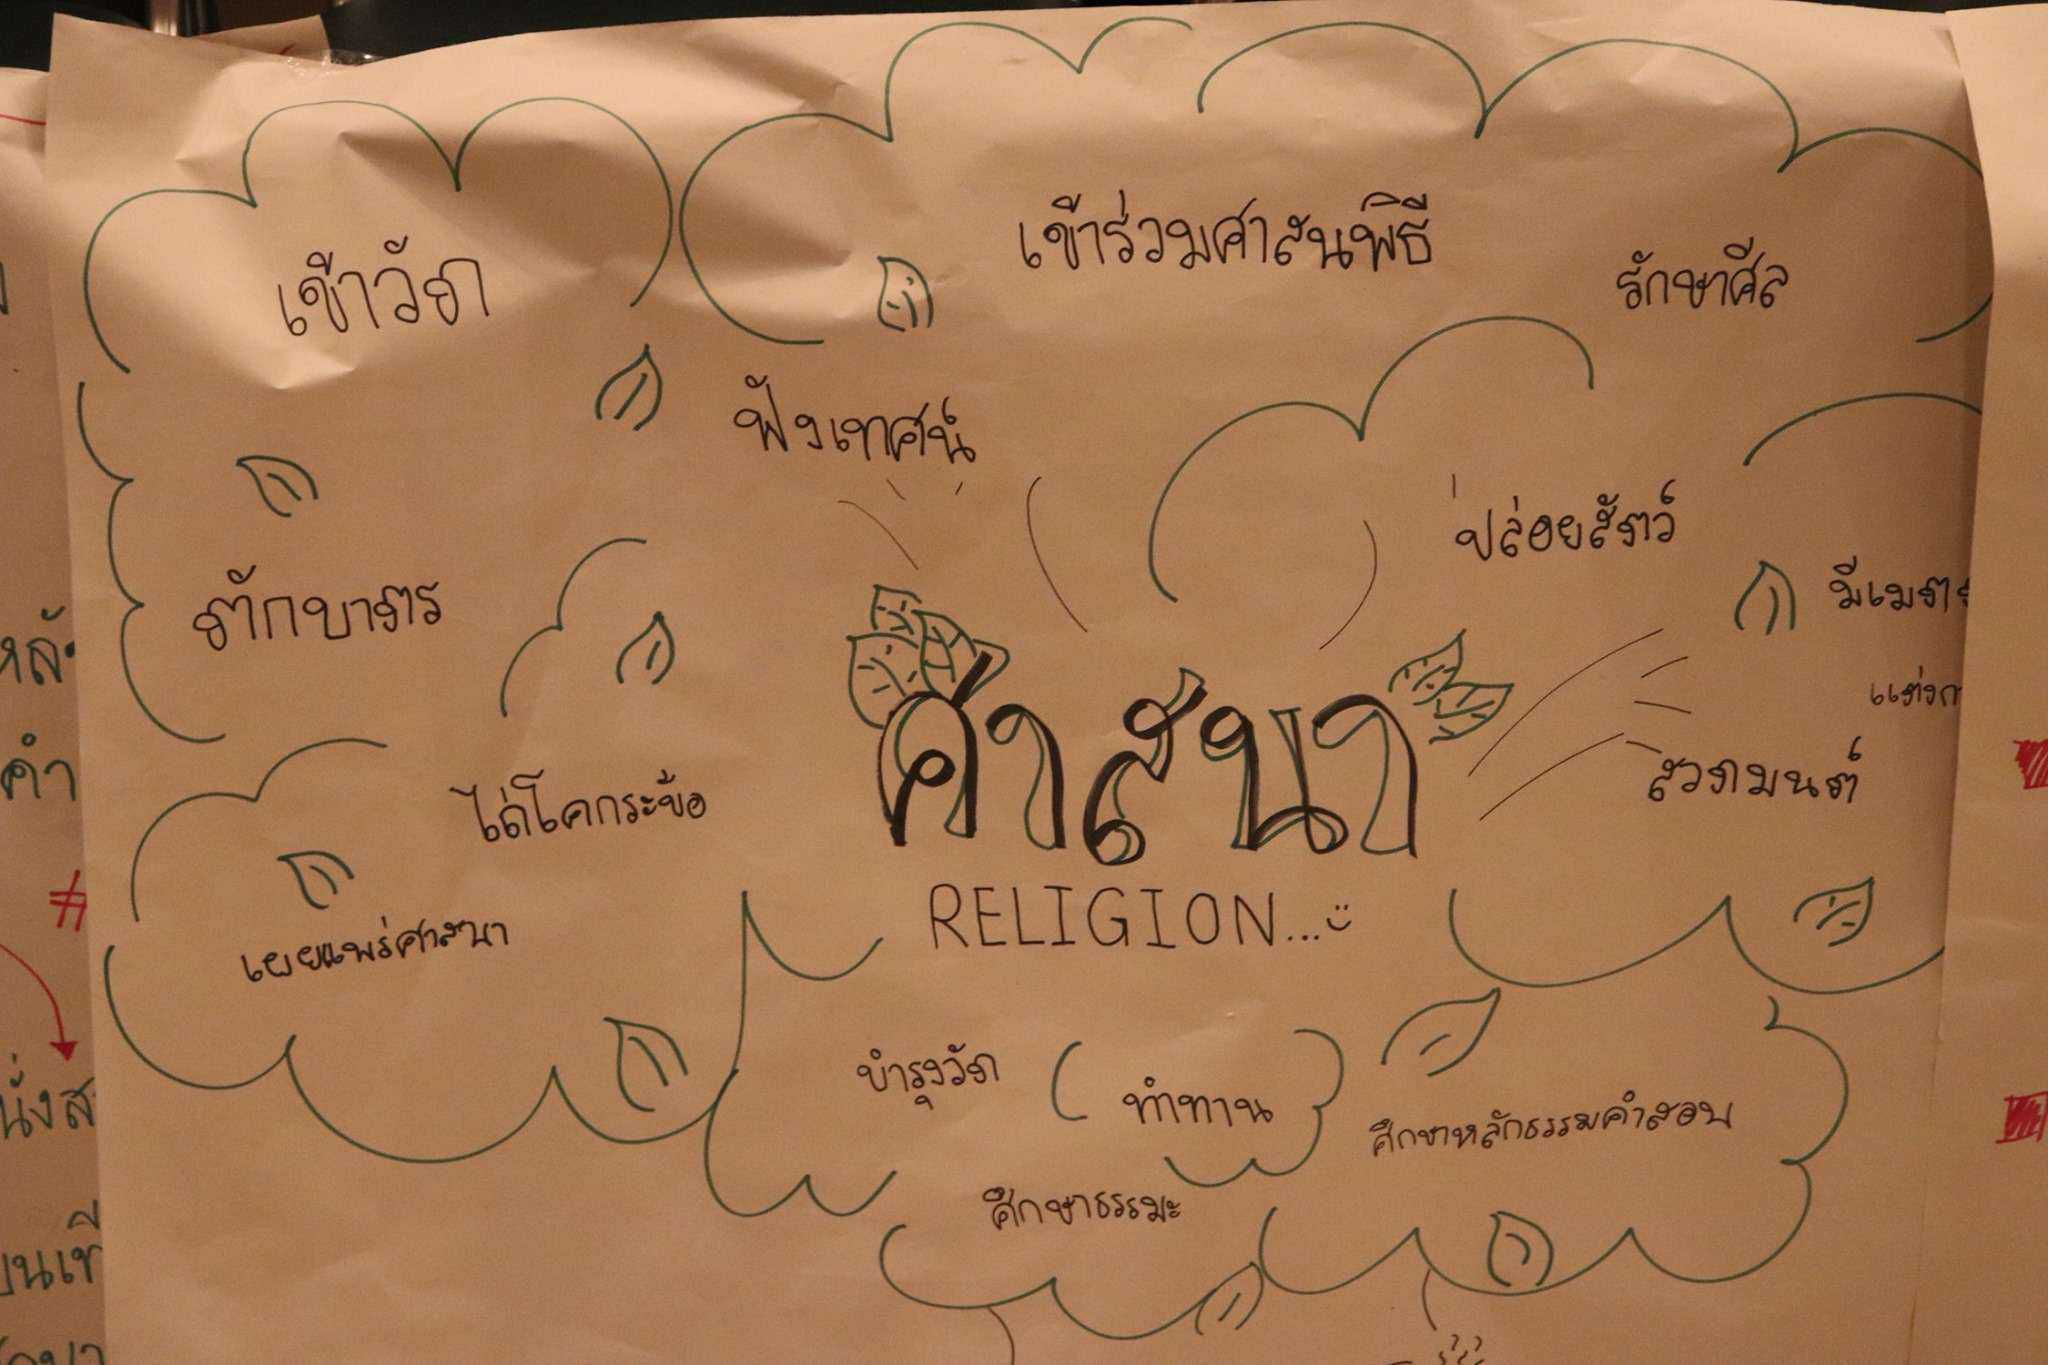 เข้าร่วมศาสนพิธี
เข้าวัด
รักษาศีล
ฟังเทศน์
ปล่อยสัตว์
มีเมต
ตักบาตร
แต่งก
ศาสนา
สวดมนต์
ไถ่โคกระบือ
RELIGION...
เผยแพร่ศาสนา
บำรุงวัด
ทำทาน
ศึกษาหลักธรรมคำสอน
ศึกษาธรรมะ
หลั
คำ
#
นั่งส